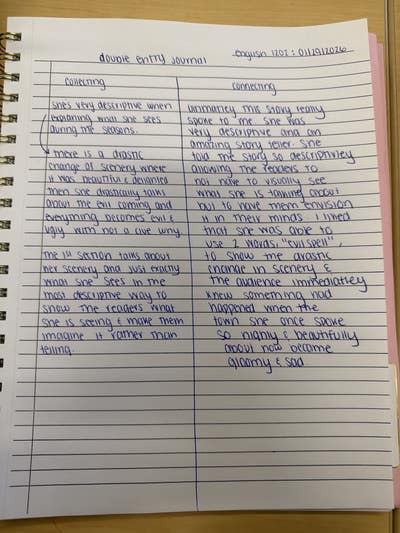 double entry journal
english 1202 : 01/29/2026
collecting
she's very descriptive when
explaining what she sees
during the seasons.
there is a drastic
change of scenery where
it was beautiful & delighted
then she drastically talks
about the evil coming and
everything becomes evil &
ugly with not a clue why.
the 1st section talks about
her scenery and just exactly
what she sees in the
most descriptive way to
show the readers what
she is seeing & make them
imagine it rather than
telling.
connecting
ultimatley this story really
spoke to me. she was
very descriptive and an
amazing story teller. she
told the story so descriptivley
allowing the readers to
not have to visually see
what she is talking about
but to have them envision
it in their minds. I liked
that she was able to
use 2 words, "evil spell",
to show the drastic
change in scenery &
the audience immediatley
knew something had
happened when the
town she once spoke
so highly & beautifully
about now became
gloomy & sad